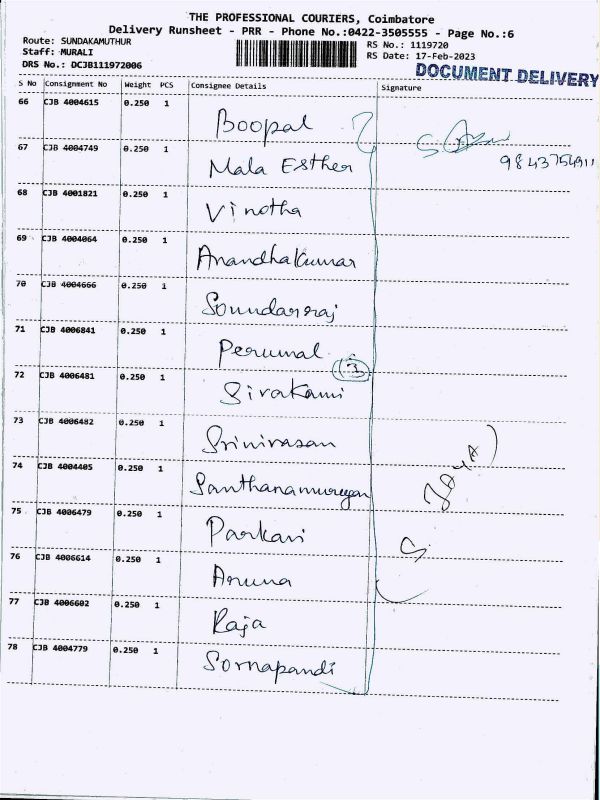 THE PROFESSIONAL COURIERS, Coimbatore
Delivery Runsheet - PRR - Phone No.:0422-3505555 - Page No.:6
Route: SUNDAKAMUTHUR
Staff: MURALI
DRS No.: DCJB111972006
RS No.: 1119720
RS Date: 17-Feb-2023
DOCUMENT DELIVERY
S No Consignment No Weight PCS Consignee Details Signature
66 CJB 4004615 0.250 1 Boopal
67 CJB 4004749 0.250 1 Mala Esther
68 CJB 4001821 0.250 1 Vinotha
69 CJB 4004064 0.250 1 Anandhakumar
70 CJB 4004666 0.250 1 Soundarraj
71 CJB 4006841 0.250 1 Perumal
72 CJB 4006481 0.250 1 Sivakami
73 CJB 4006482 0.250 1 Srinivasan
74 CJB 4004405 0.250 1 Santhanamurugan
75 CJB 4006479 0.250 1 Parkavi
76 CJB 4006614 0.250 1 Aruna
77 CJB 4006602 0.250 1 Raja
78 CJB 4004779 0.250 1 Sornapandi
S. JAYA